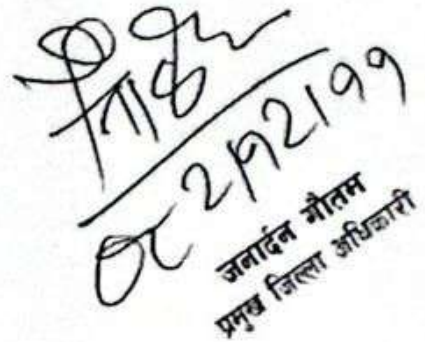 ०८२/१२/११
जनार्दन गौतम
प्रमुख जिल्ला अधिकारी